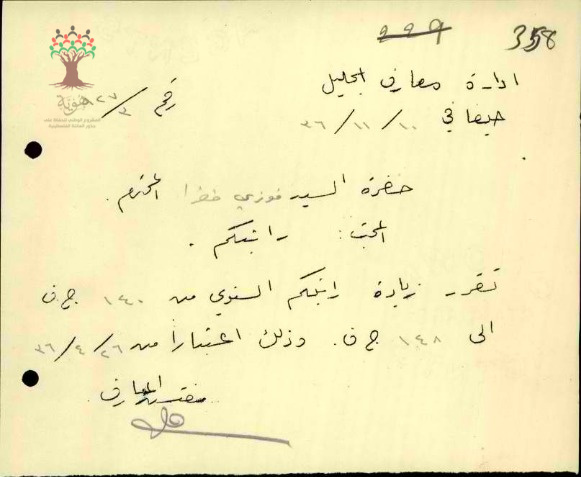 229 358
ادارة معارف الجليل
حيفا في ١٠/١١/٣٦
رقم ٣/١٢٧
هوية
حضرة السيد فوزي خضرا المحترم.
المبحث: راتبكم.
تقرر زيادة راتبكم السنوي من ١٤٠ ج ف
الى ١٤٨ ج ف. وذلك اعتباراً من ٢٦/٤/٣٦
مفتش المعارف